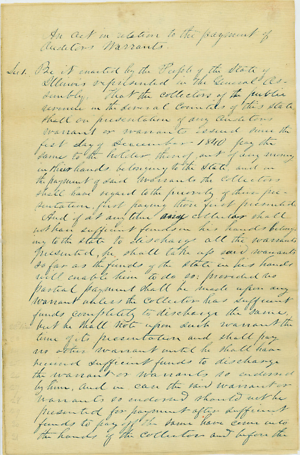 An act in relation to the payment of
Auditors Warrants
Sec 1. Be it enacted by the People of the State of
Illinois represented in the General As-
sembly, That the collectors of the public
revenue in the several Counties of this state
shall on presentation of any Auditors
warrant or warrants issued since the
first day of December 1840 pay the
same to the holder thereof out of any money
in their hands belonging to the state and in
the payment of said Warrants the Collectors
shall have regard to the priority of their pre-
sentation, first paying those first presented
And if at any time any collector shall
not have sufficient funds in his hands belong
ing to the state to discharge all the warrants
presented, he shall take up said warrants
so far as the funds of the state in his hands
will enable him to do so, provided no
partial payment shall be made upon any
warrant unless the Collector has sufficient
funds completely to discharge the same,
but he shall note upon such warrant the
time of its presentation and shall pay
no other warrant until he shall have
received sufficient funds to discharge
the warrant or warrants so endorsed
by him, and in case the said warrant or
warrants so endorsed should not be
presented for payment after sufficient
funds to pay off the same have come into
the hands of the collector and before the